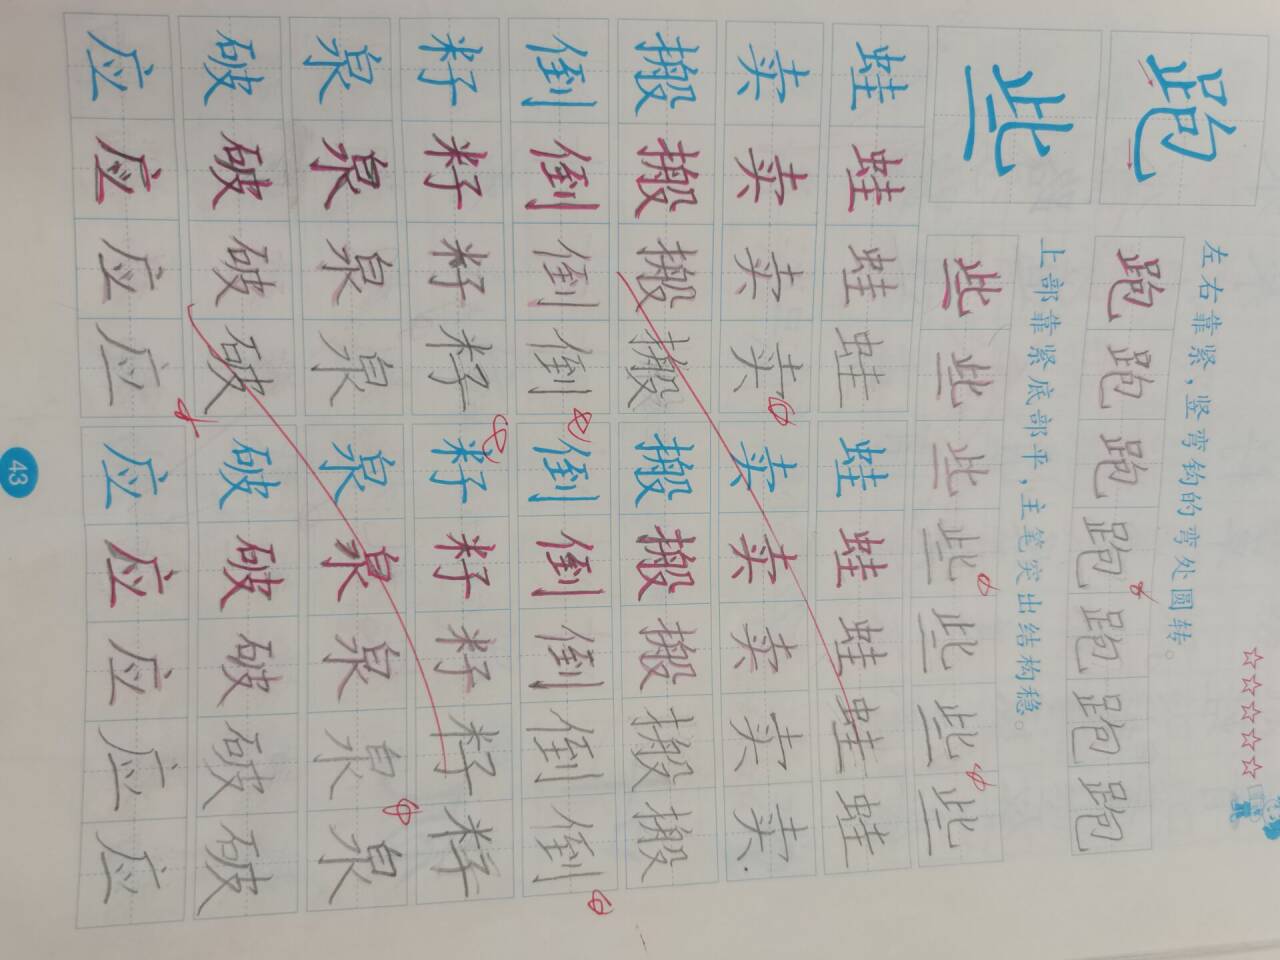 跑 左右靠紧，竖弯钩的弯处圆转。
跑 跑 跑 跑 跑 跑 跑
些 上部靠紧底部平，主笔突出结构稳。
些 些 些 些 些 些 些
蛙 蛙 蛙 蛙 蛙 蛙 蛙 蛙 蛙
卖 卖 卖 卖 卖 卖 卖 卖 卖
搬 搬 搬 搬 搬 搬 搬 搬 搬
倒 倒 倒 倒 倒 倒 倒 倒 倒
籽 籽 籽 籽 籽 籽 籽 籽 籽
泉 泉 泉 泉 泉 泉 泉 泉 泉
破 破 破 破 破 破 破 破 破
应 应 应 应 应 应 应 应 应
43